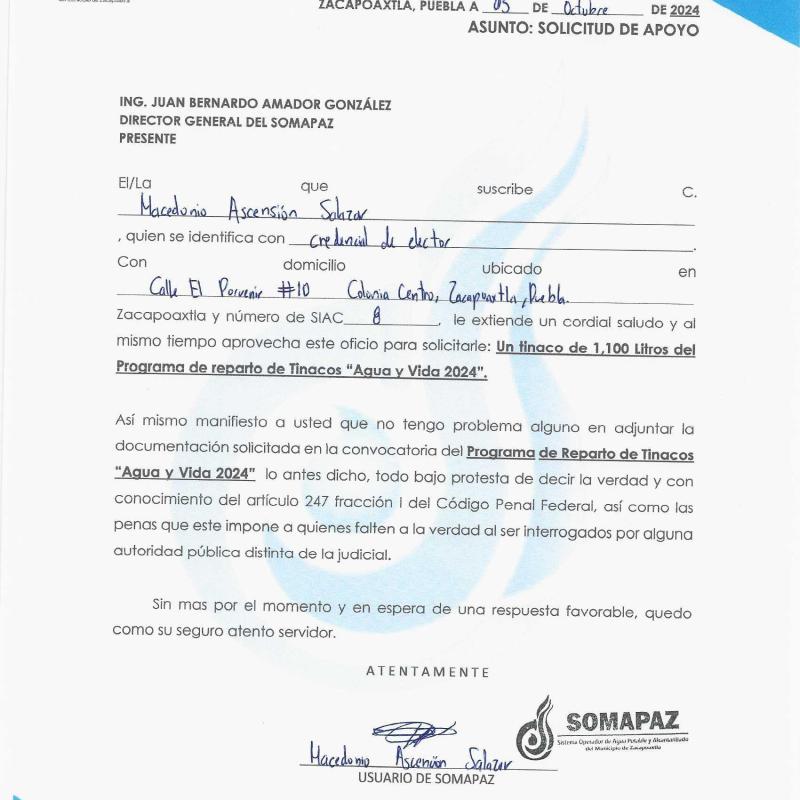 ZACAPOAXTLA, PUEBLA A 05 DE Octubre DE 2024
ASUNTO: SOLICITUD DE APOYO
ING. JUAN BERNARDO AMADOR GONZÁLEZ
DIRECTOR GENERAL DEL SOMAPAZ
PRESENTE
El/La que suscribe C.
Macedonio Ascensión Salazar
, quien se identifica con credencial de elector.
Con domicilio ubicado en
Calle El Porvenir #10 Colonia Centro, Zacapoaxtla, Puebla.
Zacapoaxtla y número de SIAC 8, le extiende un cordial saludo y al
mismo tiempo aprovecha este oficio para solicitarle: Un tinaco de 1,100 Litros del
Programa de reparto de Tinacos “Agua y Vida 2024”.
Así mismo manifiesto a usted que no tengo problema alguno en adjuntar la
documentación solicitada en la convocatoria del Programa de Reparto de Tinacos
“Agua y Vida 2024” lo antes dicho, todo bajo protesta de decir la verdad y con
conocimiento del artículo 247 fracción I del Código Penal Federal, así como las
penas que este impone a quienes falten a la verdad al ser interrogados por alguna
autoridad pública distinta de la judicial.
Sin mas por el momento y en espera de una respuesta favorable, quedo
como su seguro atento servidor.
ATENTAMENTE
SOMAPAZ
Sistema Operador de Agua Potable y Alcantarillado
del Municipio de Zacapoaxtla
Macedonio Ascensión Salazar
USUARIO DE SOMAPAZ